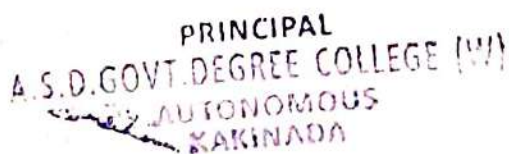 PRINCIPAL
A.S.D.GOVT.DEGREE COLLEGE (W)
AUTONOMOUS
KAKINADA